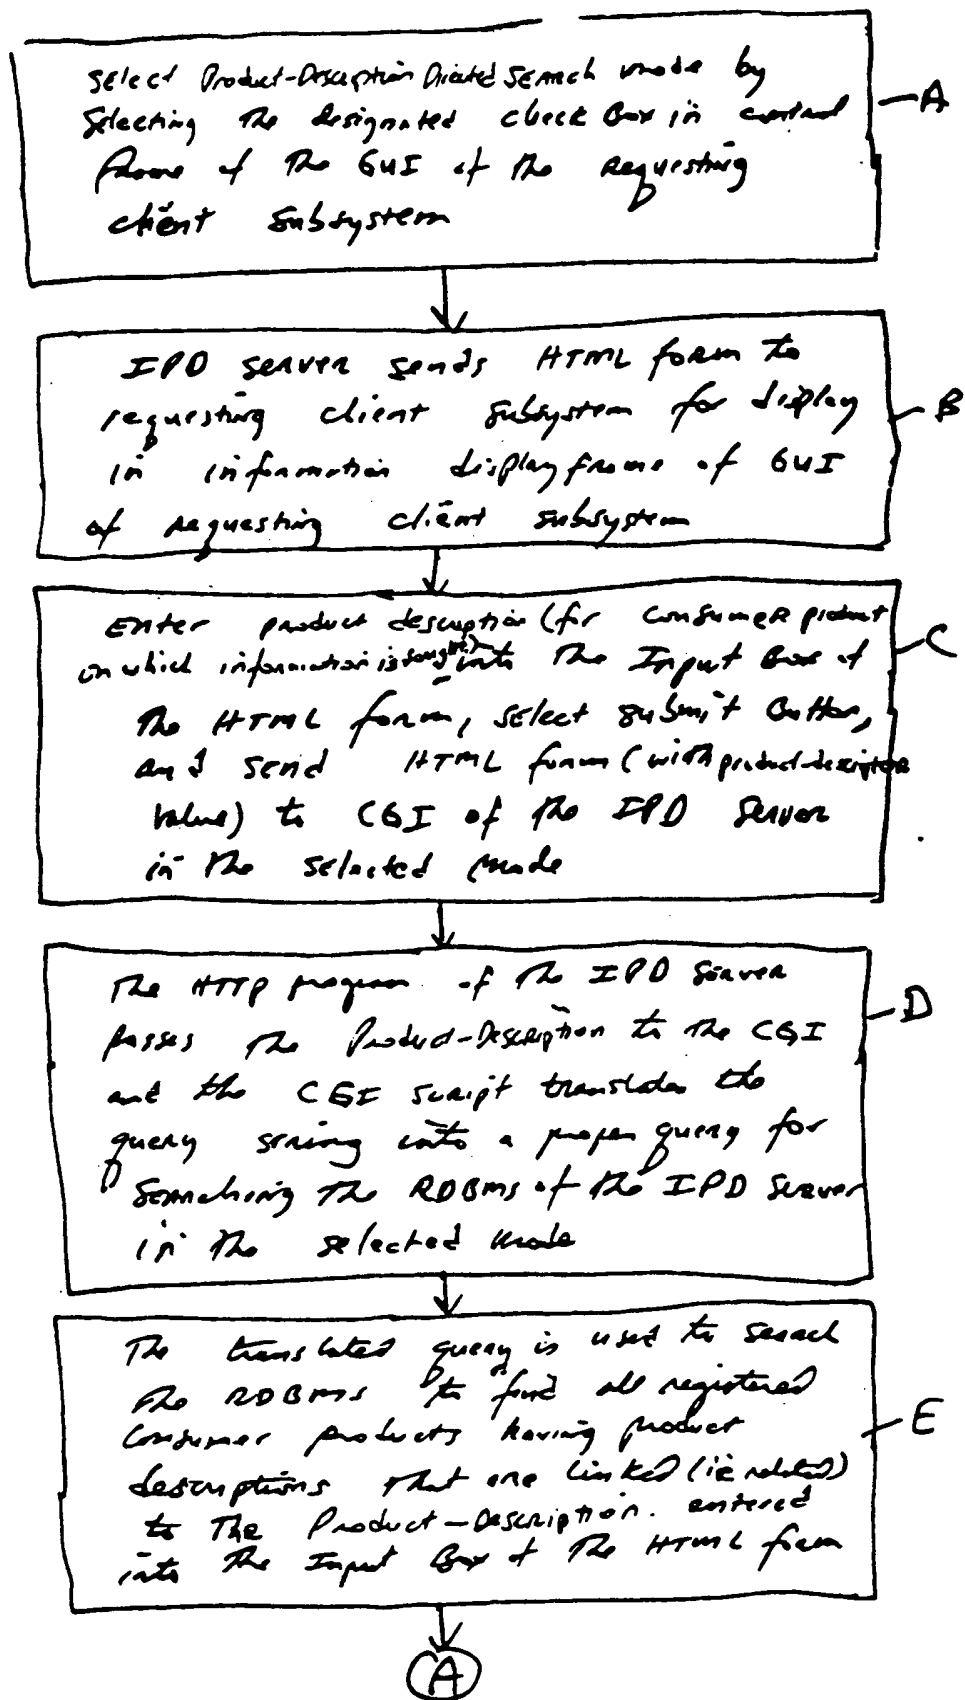 Select Product-Description Directed Search mode by
Selecting the designated check Box in control
frame of the GUI of the requesting
client Subsystem
A
IPD server sends HTML form to
requesting client subsystem for display
in information display frame of GUI
of requesting client subsystem
B
Enter product description (for consumer product
on which information is sought) into the Input Box of
the HTML form, select submit Button,
and send HTML form (with product-description
value) to CGI of the IPD Server
in the selected mode
C
The HTTP program of the IPD Server
passes the Product-Description to the CGI
and the CGI script translates the
query string into a proper query for
Searching the RDBMS of the IPD Server
in the selected mode
D
The translated query is used to search
the RDBMS to find all registered
Consumer products having product
descriptions that are linked (ie related)
to the Product-Description. entered
into the Input Box of the HTML form
E
A